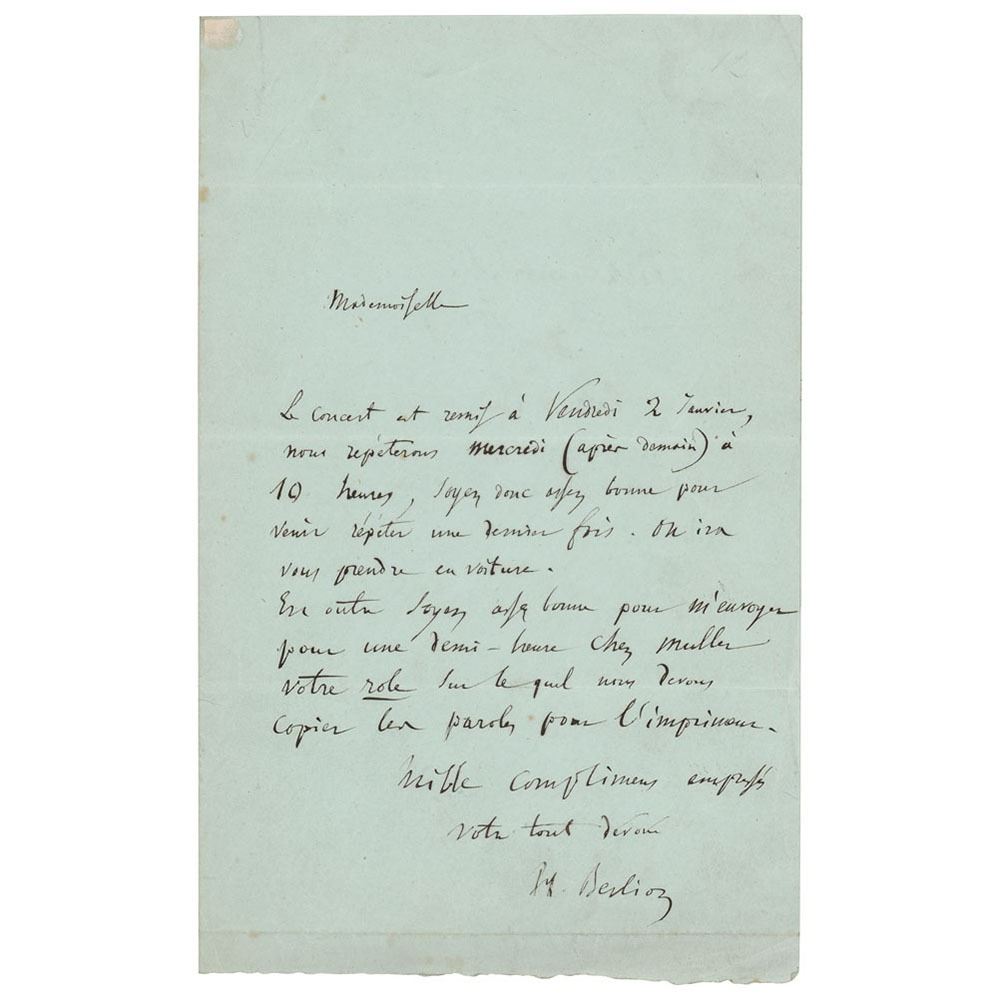 Mademoiselle
Le concert est remis à Vendredi 2 Janvier,
nous répèterons mercredi (après demain) à
10 heures, soyez donc assez bonne pour
venir répéter une dernier fois. On ira
vous prendre en voiture.
En outre soyez assez bonne pour m'envoyer
pour une demi-heure chez muller
votre role sur le quel nous devons
copier les paroles pour l'imprimeur.
Mille complimens empressés
votre tout dévoué
H. Berlioz